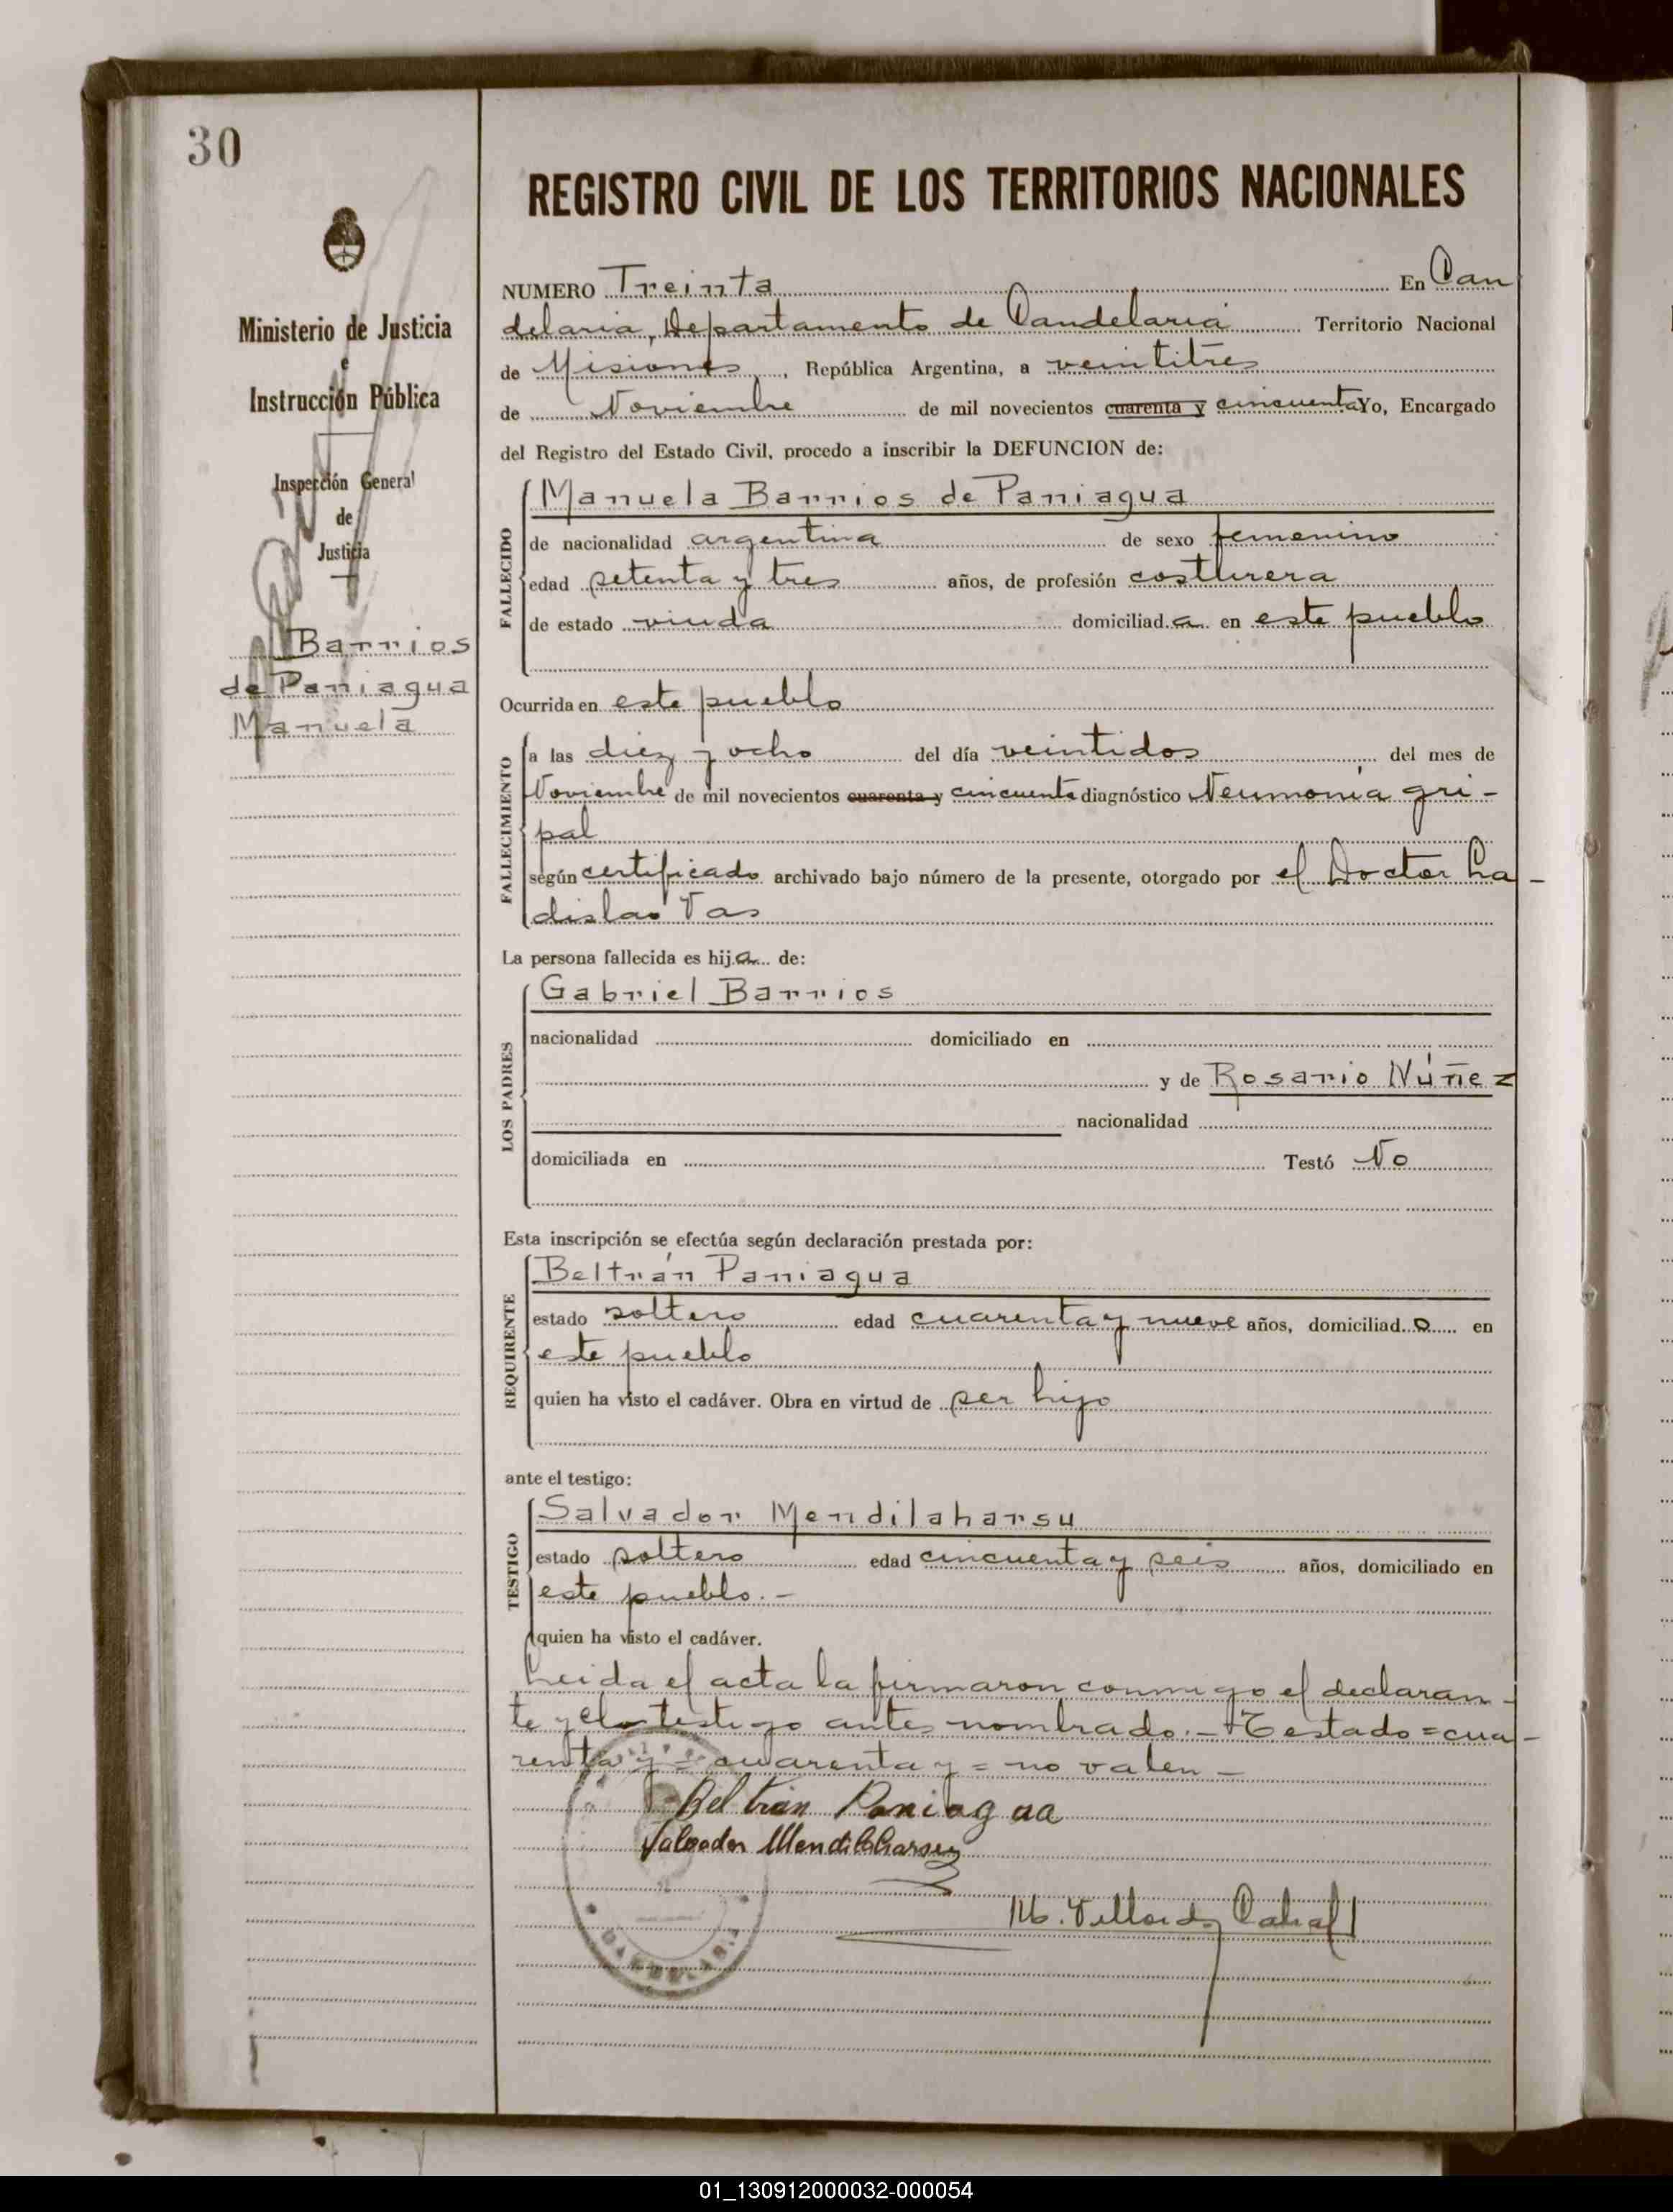 30
Ministerio de Justicia
e
Instrucción Pública
Inspección General
de
Justicia
Barrios
de Paniagua
Manuela
REGISTRO CIVIL DE LOS TERRITORIOS NACIONALES
NUMERO Treinta En Can
delaria, Departamento de Candelaria Territorio Nacional
de Misiones, República Argentina, a veintitres
de Noviembre de mil novecientos cuarenta y cincuenta Yo, Encargado
del Registro del Estado Civil, procedo a inscribir la DEFUNCION de:
FALLECIDO
Manuela Barrios de Paniagua
de nacionalidad argentina de sexo femenino
edad setenta y tres años, de profesión costurera
de estado viuda domiciliad a en este pueblo
Ocurrida en este pueblo
FALLECIMIENTO
a las diez y ocho del día veintidos del mes de
Noviembre de mil novecientos cuarenta y cincuenta diagnóstico Neumonía gri-
pal
según certificado archivado bajo número de la presente, otorgado por el Doctor La-
dislao Vas
La persona fallecida es hij a de:
LOS PADRES
Gabriel Barrios
nacionalidad domiciliado en
y de Rosario Núñez
nacionalidad
domiciliada en Testó No
Esta inscripción se efectúa según declaración prestada por:
REQUIRENTE
Beltrán Paniagua
estado soltero edad cuarenta y nueve años, domiciliad o en
este pueblo
quien ha visto el cadáver. Obra en virtud de ser hijo
ante el testigo:
TESTIGO
Salvador Mendilaharsu
estado soltero edad cincuenta y seis años, domiciliado en
este pueblo.-
quien ha visto el cadáver.
Leida el acta la firmaron conmigo el declaran-
te y el testigo antes nombrado.- Testado = cua-
renta y = cuarenta y = no valen -
Beltrán Paniagua
Salvador Mendilaharsu
Cabral
CANDELARIA
01_130912000032-000054